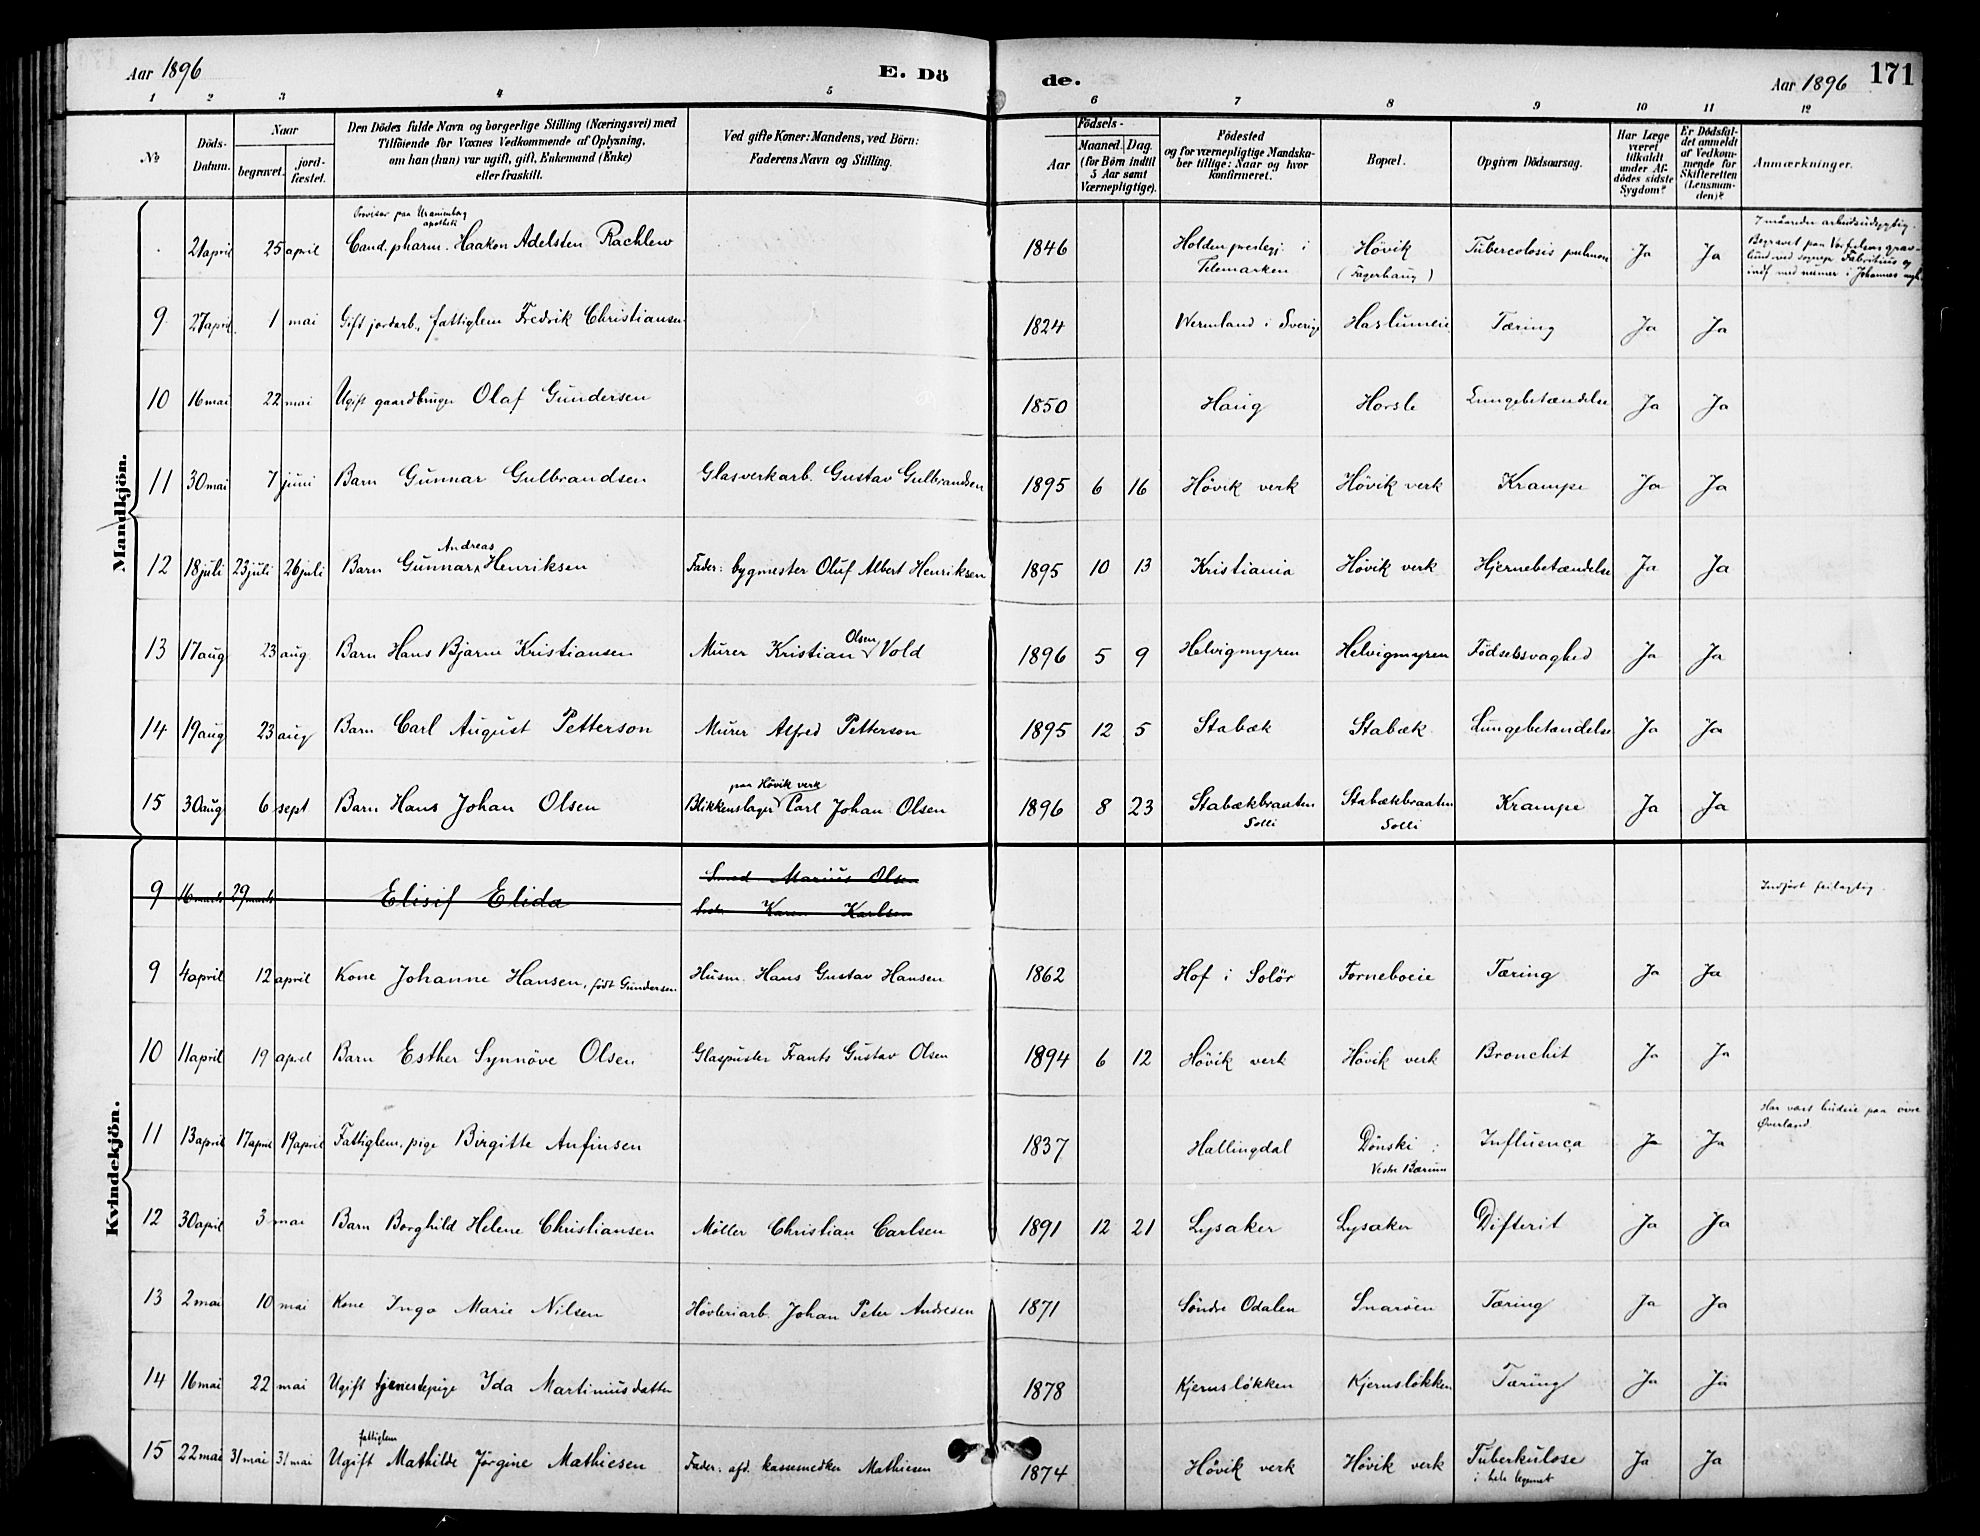 Aar 1896 E. Dö de. Aar 1896 171
1 2 3 4 5 6 7 8 9 10 11 12
No Döds-Datum. Naar begravet. jord-fæstet. Den Dödes fulde Navn og borgerlige Stilling (Næringsvei) med Tilföiende for Voxnes Vedkommende af Oplysning, om han (hun) var ugift, gift, Enkemand (Enke) eller fraskilt. Ved gifte Koner: Mandens, ved Börn: Faderens Navn og Stilling. Födsels- Aar Maaned. Dag. (for Börn indtil 5 Aar samt Værnepligtige). Födested og for værnepligtige Mandska-ber tillige: Naar og hvor konfirmeret. Bopæl. Opgiven Dödsaarsag. Har Læge været tilkaldt under Af-dödes sidste Sygdom? Er Dödsfal-det anmeldt af Vedkom-mende for Skifteretten (Lensman-den)? Anmærkninger.
Mandkjön.
Provisor paa Uranienborg apothek
21 april 25 april Cand. pharm. Haakon Adelsten Rachlew 1846 Holden prestegj. i Telemarken Hövik (Fagerhaug) Tubercolosis pulmon Ja Ja 7 maaneder arbeidsudygtig. Begravet paa Vor frelsers grav-lund ved sognepr Fabritius og
9 27 april 1 mai Gift jordarb., fattiglem Fredrik Christiansen 1824 Wermland i Sverige Haslumeie Tæring Ja Ja
10 16 mai 22 mai Ugift gaardbruger Olaf Gundersen 1850 Haug Horsle Lungebetændelse Ja Ja
11 30 mai 7 juni Barn Gunnar Gulbrandsen Glasverkarb. Gustav Gulbrandsen 1895 6 16 Hövik verk Hövik verk Krampe Ja Ja
12 18 juli 23 juli 26 juli Barn Gunnar Andreas Henriksen Fader: bygmester Oluf Albert Henriksen 1895 10 13 Kristiania Hövik verk Hjernebetændelse Ja Ja
13 17 aug 23 aug. Barn Hans Bjarne Kristiansen Murer Kristian Olsen Vold 1896 5 9 Helvigmyren Helvigmyren Födselssvaghed Ja Ja
14 19 aug 23 aug Barn Carl August Petterson Murer Alfred Petterson 1895 12 5 Stabæk Stabæk Lungebetændelse Ja Ja
15 30 aug 6 sept Barn Hans Johan Olsen Blikkenslager paa Hövik verk Carl Johan Olsen 1896 8 23 Stabækbraaten Solli Stabækbraaten Solli Krampe Ja Ja
Kvindekjön.
9 16 marts 29 marts Elisif Elida Smed Marius Olsen Karen Karlsen Indfört feilagtig.
9 4 april 12 april Kone Johanne Hansen, födt Gundersen Husm. Hans Gustav Hansen 1862 Hof i Solör Forneboeie Tæring Ja Ja
10 11 april 19 april Barn Esther Synnöve Olsen Glaspuster Frants Gustav Olsen 1894 6 12 Hövik verk Hövik verk Bronchit Ja Ja
11 13 april 17 april 19 april Fattiglem, pige Birgitte Anfinsen 1837 Hallingdal Dönski i Vestre Bærum Influença Ja Ja Har vært budeie paa övre Överland
12 30 april 3 mai Barn Borghild Helene Christiansen Möller Christian Carlsen 1891 12 21 Lysaker Lysaker Difterit Ja Ja
13 2 mai 10 mai Kone Inga Marie Nilsen Hövleriarb. Johan Peter Andresen 1871 Söndre Odalen Snaröen Tæring Ja Ja
14 16 mai 22 mai Ugift tjenestepige Ida Martiniusdatter 1878 Kjernslökken Kjernslökken Tæring Ja Ja
15 22 mai 31 mai 31 mai Ugift fattiglem Mathilde Jörgine Mathiesen Fader: afd. Mathiesen 1874 Hövik verk Hövik verk Tuberkulose i hele legemet Ja Ja